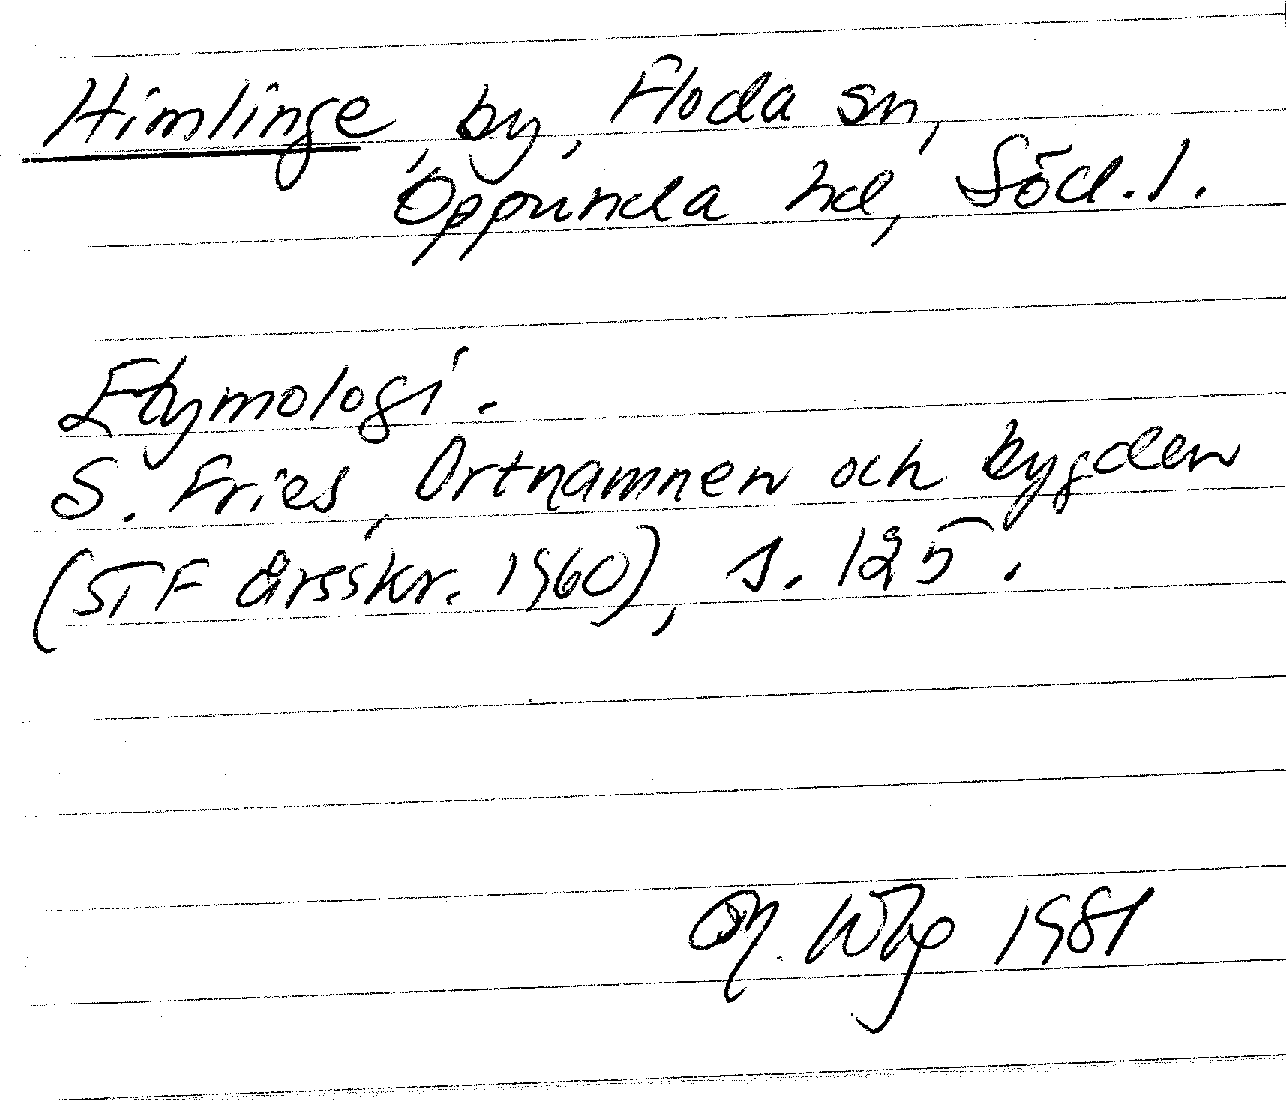 Himlinge, by, Floda sn,
Oppunda hd, Södl.
Etymologi.
S. Fries, Ortnamnen och bygden
(STF årsskr. 1960), s. 125.
1981